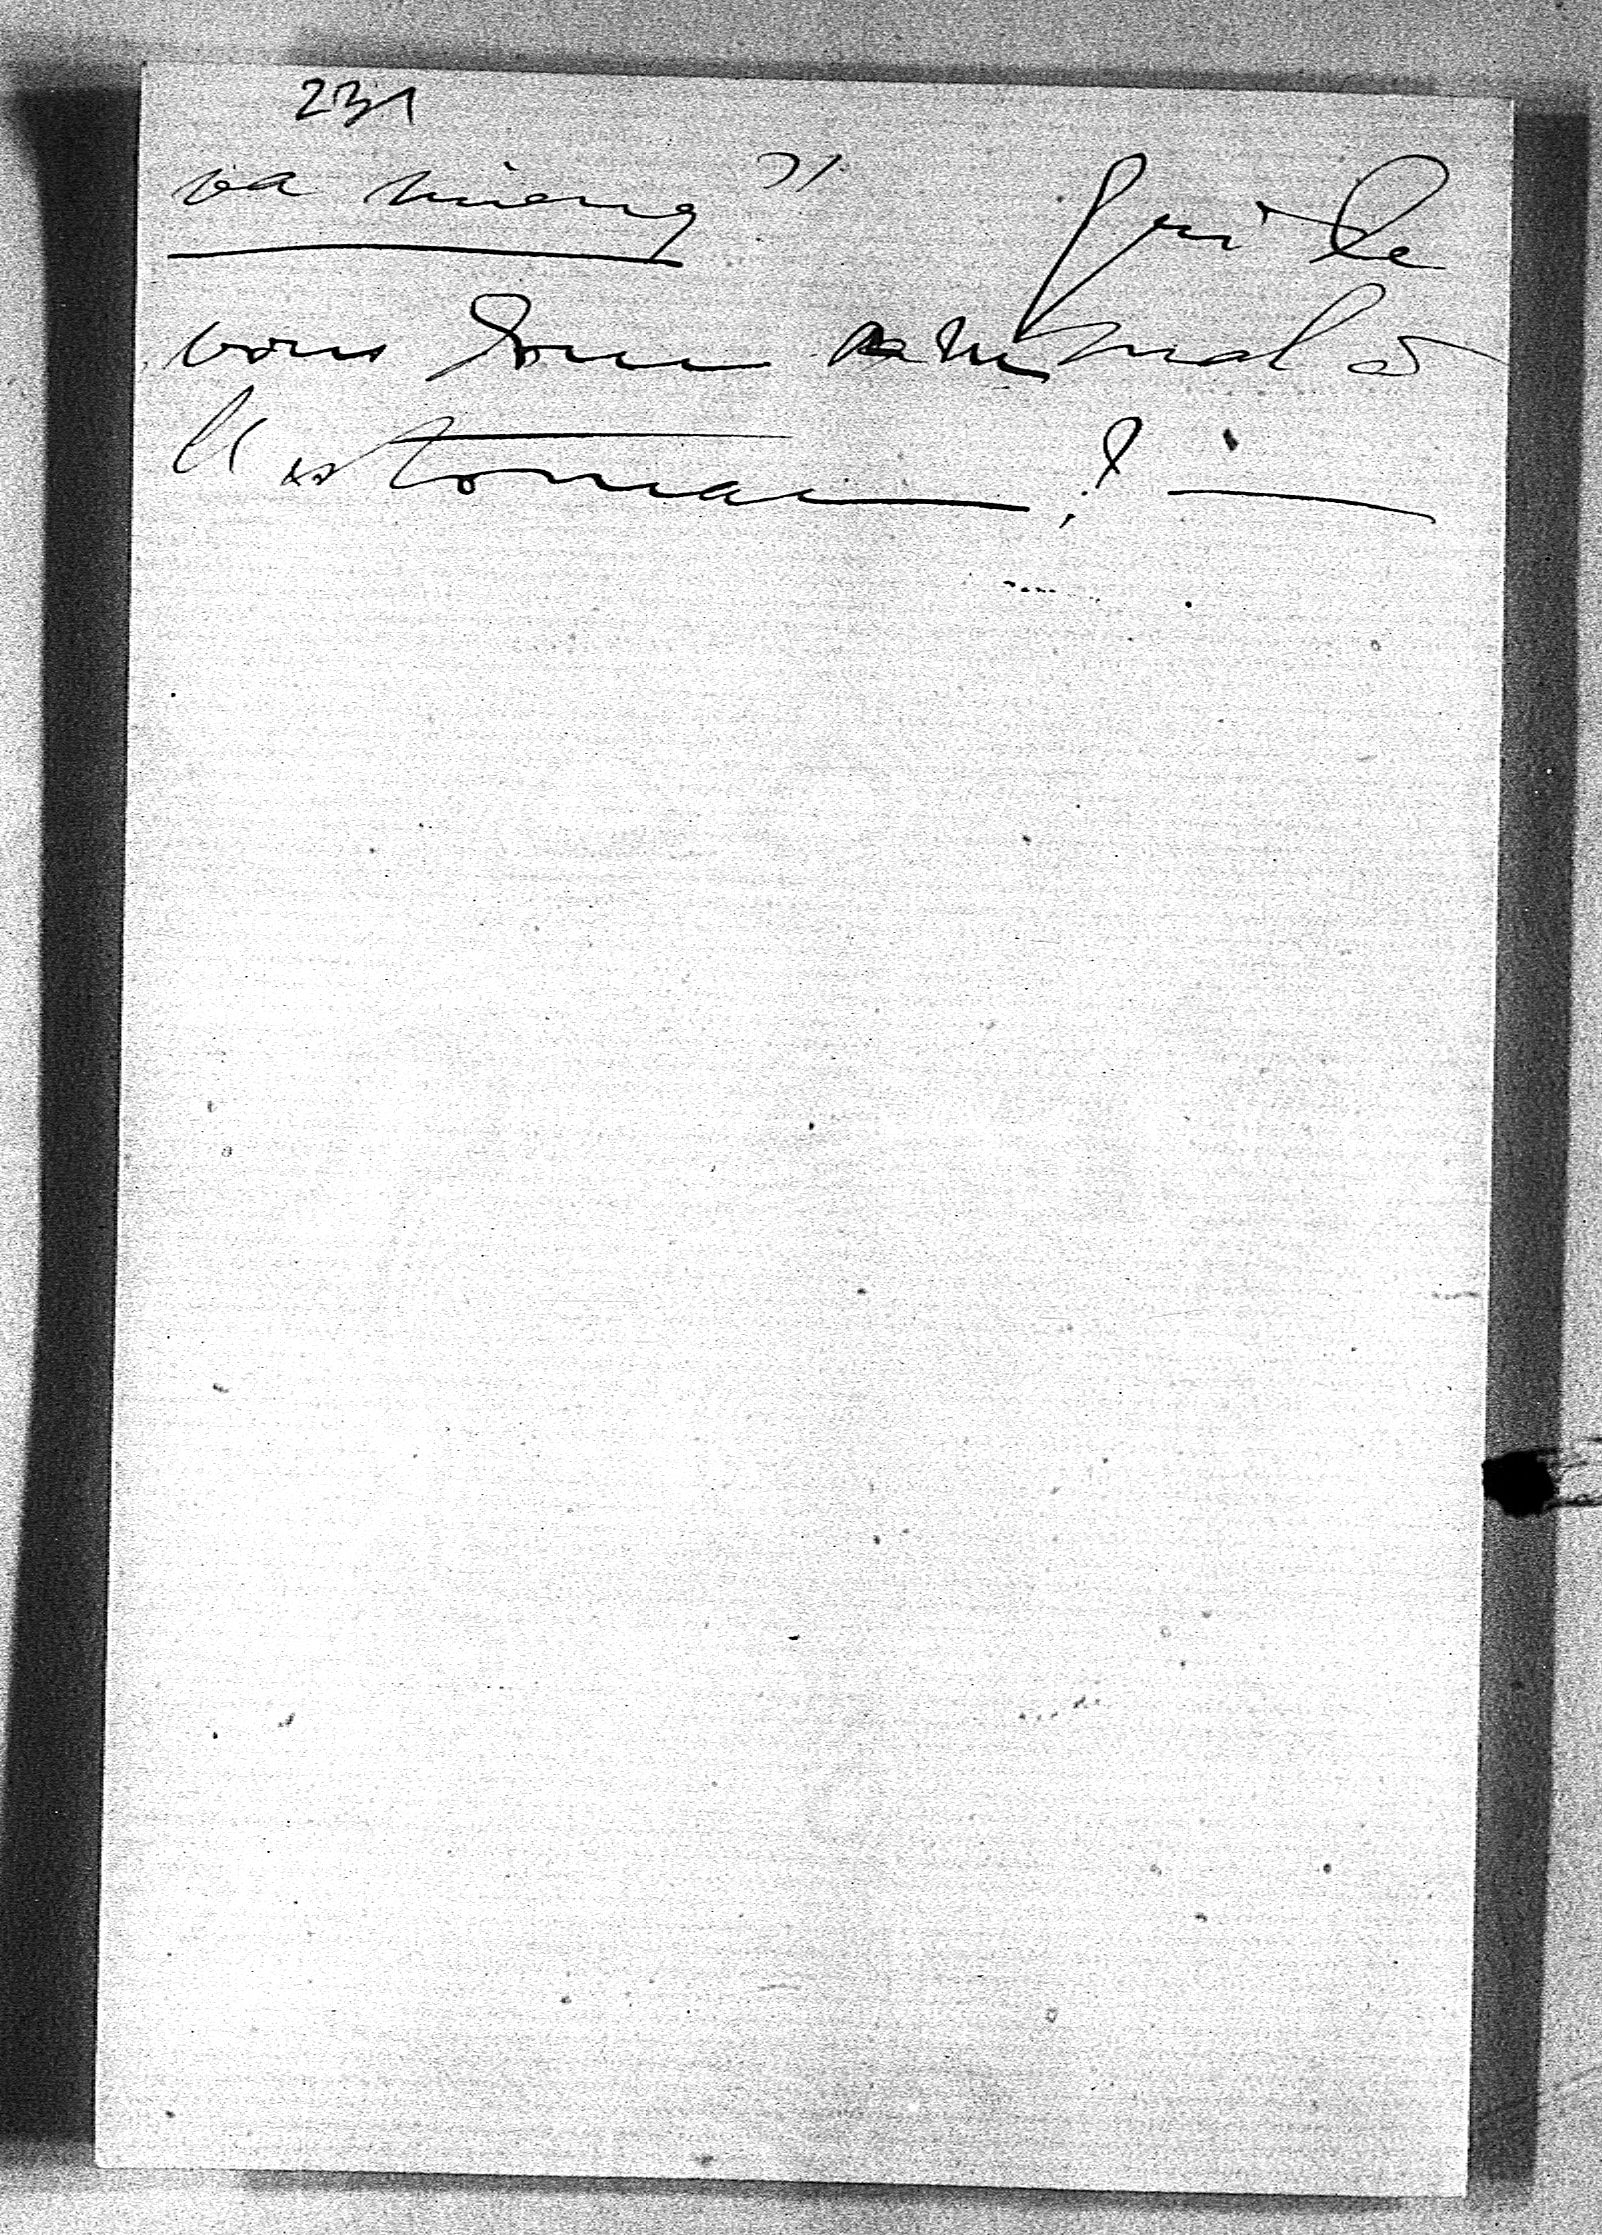 231
va mieux" qui te
vous donne mal à
l'estomac! —